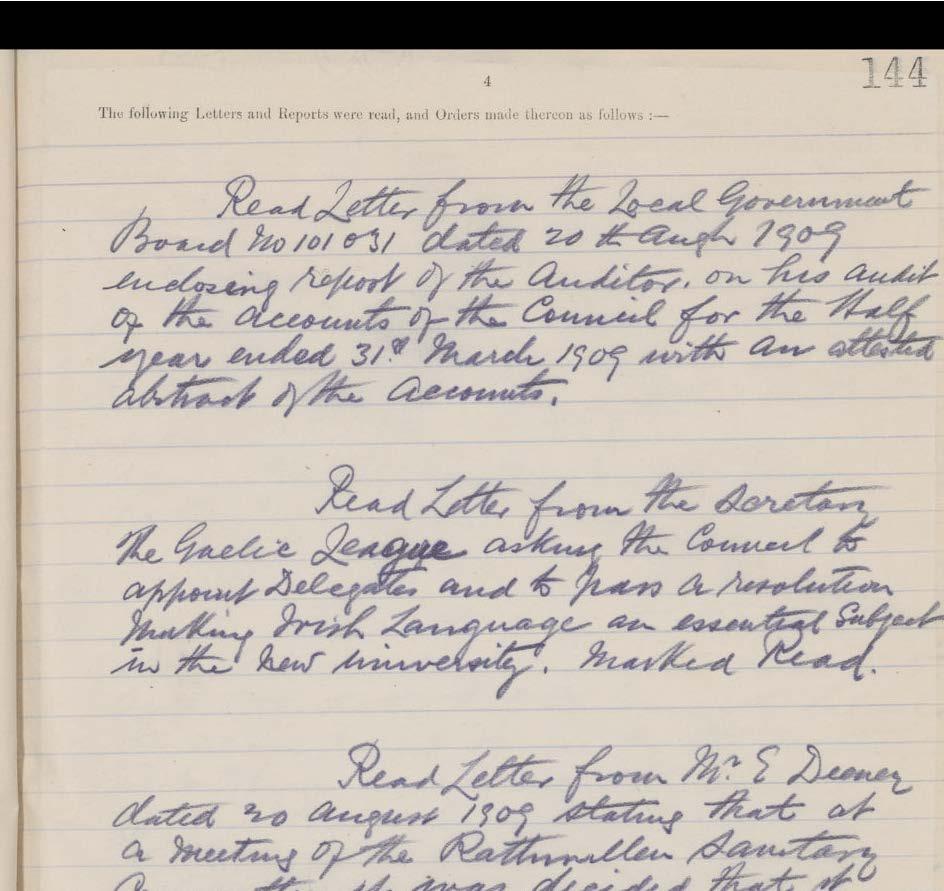 144
4
The following Letters and Reports were read, and Orders made thereon as follows :—
Read Letter from the Local Government
Board No 101031 dated 20th Augt 1909
enclosing report of the Auditor, on his audit
of the accounts of the Council for the Half
year ended 31st March 1909 with an attested
abstract of the accounts.
Read Letter from the Secretary
The Gaelic League asking the Council to
appoint Delegates and to pass a resolution
making Irish Language an essential Subject
in the New University. Marked Read.
Read Letter from Mr. E Deeney
dated 20 August 1909 stating that at
a meeting of the Rathmullen Sanitary
it was decided that